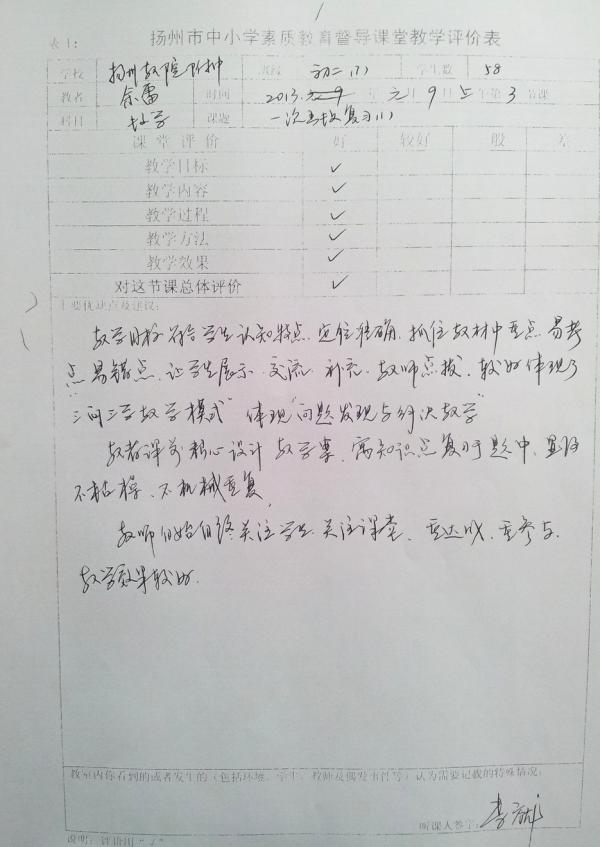 表1: 扬州市中小学素质教育督导课堂教学评价表
学校 扬州教院附中 班级 初二(1) 学生数 58
教者 余雷 时间 2013. 年 元月9日上午第3节课
科目 数学 课题 一次函数复习(1)
课堂评价 好 较好 一般 差
教学目标 ✓
教学内容 ✓
教学过程 ✓
教学方法 ✓
教学效果 ✓
对这节课总体评价 ✓
主要优缺点及建议:
教学目标符合学生认知特点,定位准确,抓住教材中重点、易考
点、易错点,让学生展示、交流、补充,教师点拨,较好体现了
“三问三学教学模式”体现“问题发现与解决教学”
教者课前精心设计教学案,寓知识点复习于题中,
不枯燥、不机械重复。
教师自始自终关注学生、关注课堂,重达成、重参与,
教学效果较好.
教室内你看到的或者发生的(包括环境、学生、教师及偶发事件等)认为需要记载的特殊情况:
听课人签字: 李
说明: 评价用“✓”